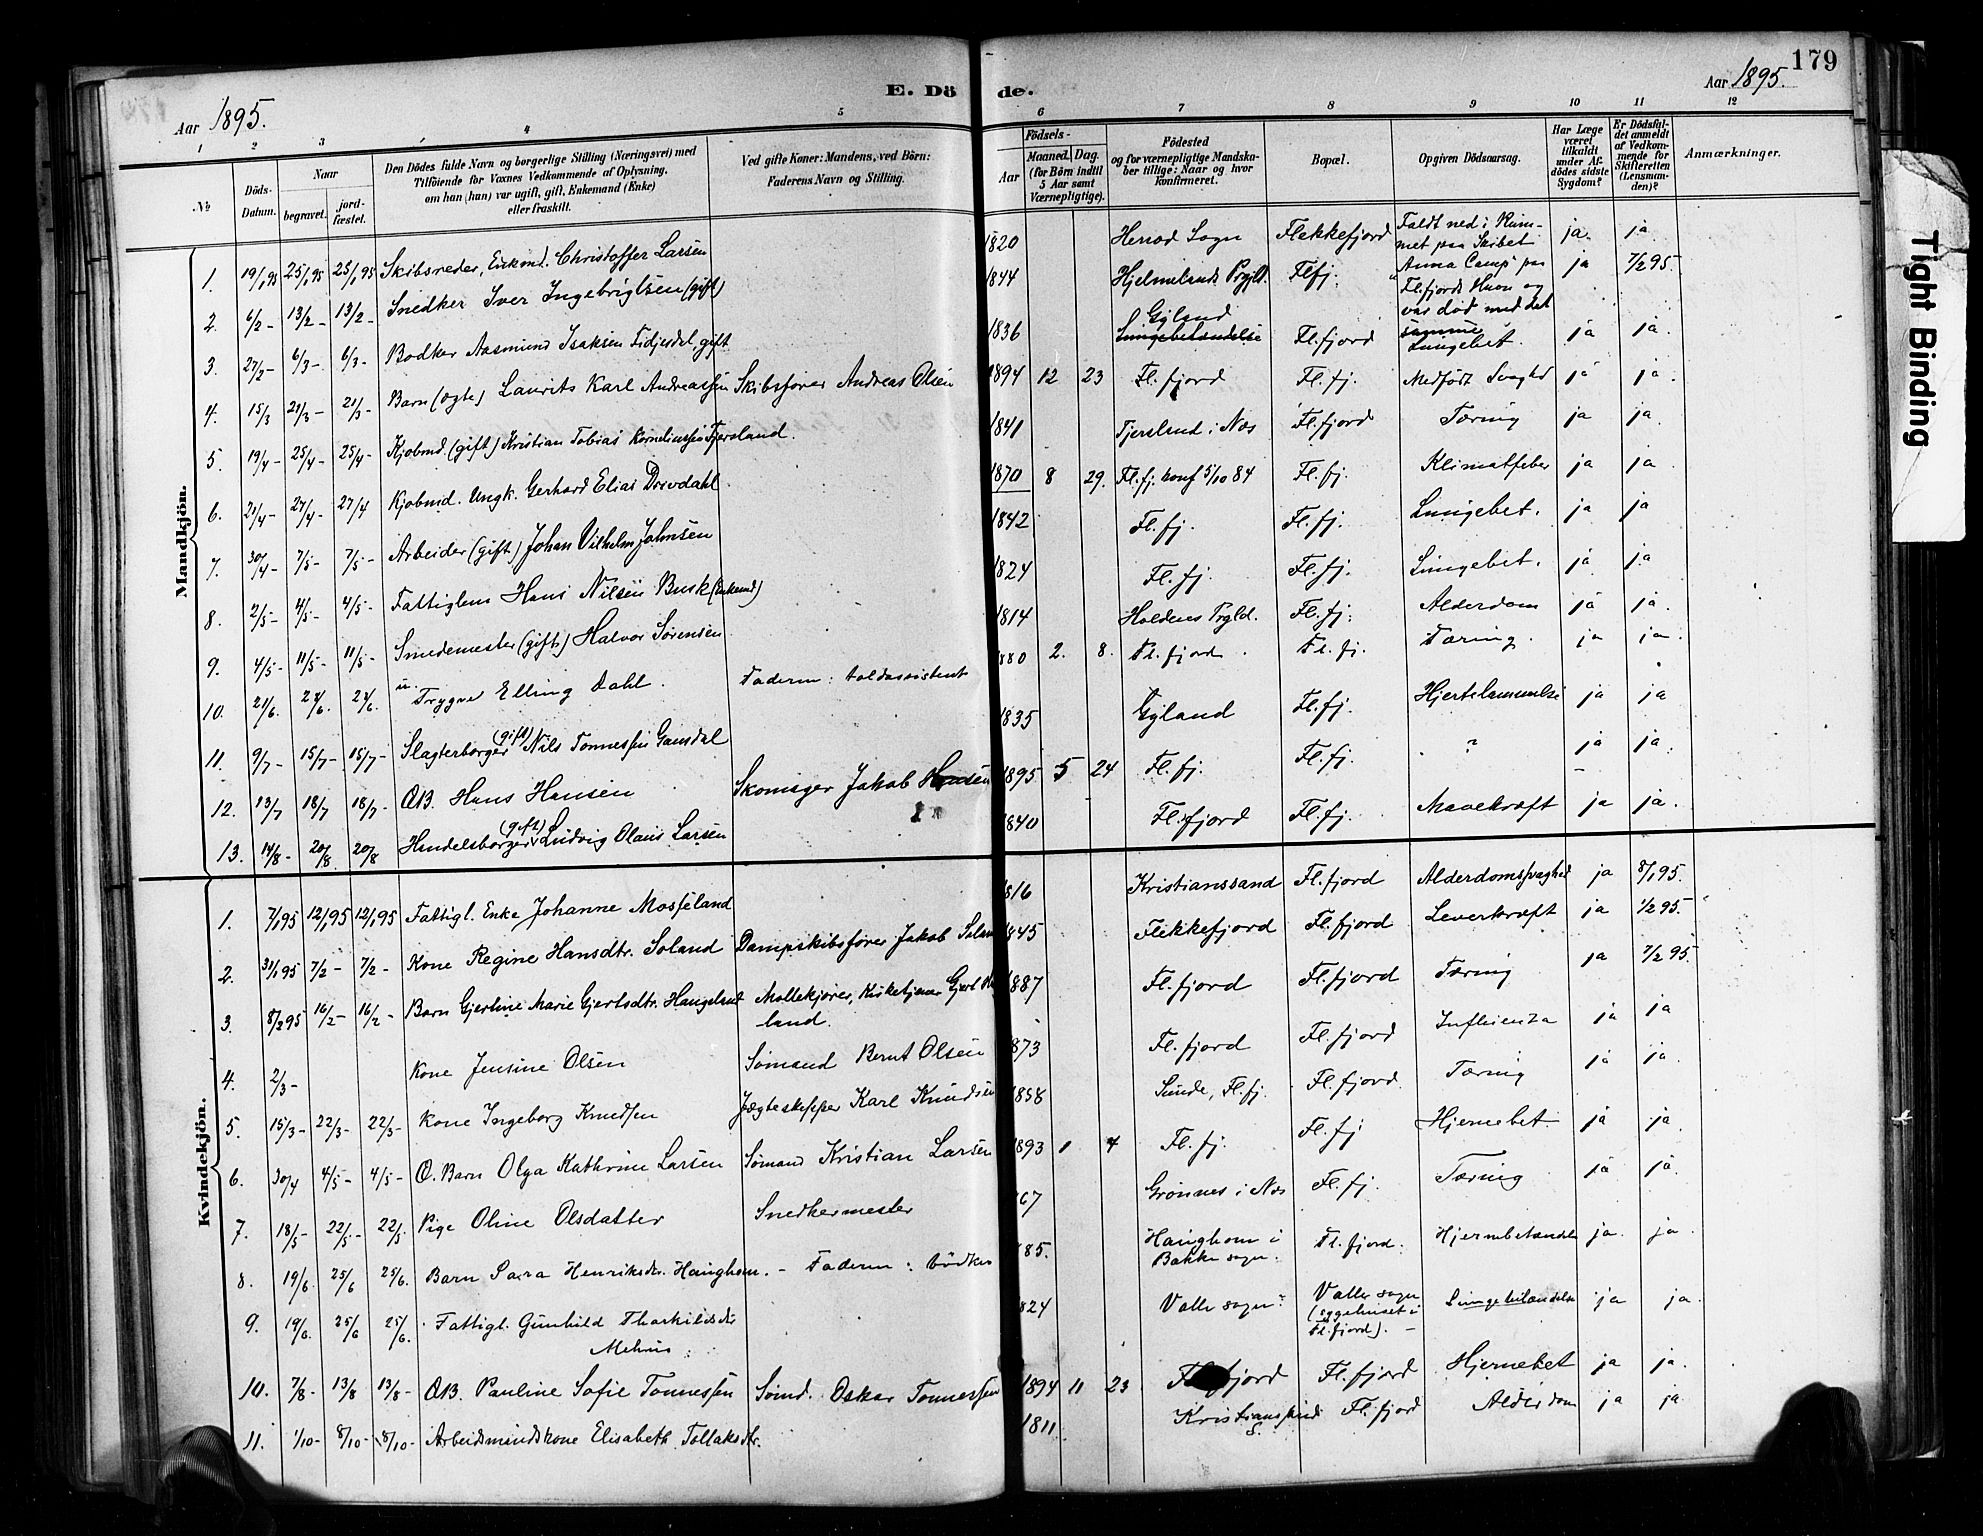 179
Aar 1895.
E. Döde.
Aar 1895.
1 2 3 4 5 6 7 8 9 10 11 12
№
Döds-Datum.
Naar
begravet.
jordfæstet.
Den Dödes fulde Navn og borgerlige Stilling (Næringsvei) med
Tilföiende for Voxnes Vedkommende af Oplysning,
om han (hun) var ugift, gift, Enkemand (Enke)
eller fraskilt.
Ved gifte Koner: Mandens, ved Börn:
Faderens Navn og Stilling.
Födsels-
Aar
Maaned. Dag.
(for Börn indtil
5 Aar samt
Værnepligtige).
Födested
og for værnepligtige Mandska-
ber tillige: Naar og hvor
konfirmeret.
Bopæl.
Opgiven Dödsaarsag.
Har Læge
været
tilkaldt
under Af-
dödes sidste
Sygdom?
Er Dödsfal-
det anmeldt
af Vedkom-
mende for
Skifteretten
(Lensman-
den)?
Anmærkninger.
Mandkjön.
1. 19/1 95 25/1 95 25/1 95 Skibsreder, Enkmd. Christoffer Larsen 1820 Sogn Flekkefjord Faldt ned i Rum-
met paa Skibet ja. ja
"Anna Camp" paa
Fl.fjords Havn og
var död med det
samme
2. 6/2- 13/2- 13/2- Snedker Iver Ingebrigtsen (gift) 1844 Hjelmelands Prgjld. Flfj. ja 7/2 95.
3. 27/2- 6/3- 6/3- Bødker Aasmund Isaksen Fidjedal, gift 1836 Gyland Fl.fjord Lungebet. ja ja.
4. 15/3 21/3- 21/3- Barn (ægte) Laurits Karl Andreassen Skibsfører Andreas Olsen 1894 12 23 Fl.fjord Fl.fj. Medfödt Svaghed ja ja.
5. 19/4- 25/4- 25/4- Kjøbmd. (gift) Kristian Tobias Korneliussen Tjersland. 1841 Tjersland i Næs Fl.fjord Tæring ja ja.
6. 21/4- 27/4- 27/4 Kjøbmd. Ungk. Gerhard Elias Drivdahl 1870 8 29. Fl.fj. konf 5/10 84 Fl.fj. Klimatfeber ja ja.
7. 30/4- 7/5- 7/5- Arbeider (gift) Johan Vilhelm Johnsen 1842 Fl.fj. Fl.fj. Lungebet. ja ja
8. 2/5- 4/5- 4/5- Fattiglem Hans Nilsen Busk (Enkemd) 1824 Fl.fj. Fl.fj. Lungebet. ja ja
9. 4/5- 11/5- 11/5- Smedemester (gift) Halvor Sørensen 1814 Holdens Prgld. Fl.fj. Alderdom ja ja.
10. 21/6. 24/6. 24/6. u. Trygve Elling Dahl. Faderen: toldassistent 1880 2. 8. Fl.fjord Fl.fj. Tæring. ja ja.
11. 9/7- 15/7- 15/7- Slagterborger (gift) Nils Tønnessen Gausdal 1835 Gyland Fl.fj. Hjertelammelse ja ja
12. 13/7 18/7 18/7- ÆB. Hans Hansen Skomager Jakob Hansen 1895 5 24 Fl.fj. Fl.fj. ? ja ja.
13. 14/8- 20/8 20/8 Handelsborger (gift) Ludvig Olaus Larsen 1840 Fl.fjord Fl.fj. Mavekræft ja ja.
Kvindekjön.
1. 7/1 95 12/1 95 12/1 95 Fattigl. Enke Johanne Mosseland 1816 Kristianssand Fl.fjord Alderdomssvaghed ja 8/1 95.
2. 31/1 95 7/2- 7/2- Kone Regine Hansdtr. Soland Dampskibsfører Jakob Soland 1845 Flekkefjord Fl.fjord Leverkræft ja 1/2 95.
3. 8/2 95 16/2- 16/2- Barn Gjertine Marie Gjertsdtr. Haugeland Møllekjører, Kirketjener Gjert
land. 1887 Fl.fjord Fl.fjord Tæring ja 7/2 95.
4. 2/3- Kone Jensine Olsen Sømand Bernt Olsen 1873 Fl.fjord Fl.fjord Influenza ja ja
5. 15/3- 22/3- 22/3- Kone Ingeborg Knudsen Jægteskipper Karl Knudsen 1858 Sunde, Fl.fj. Fl.fjord. Tæring ja ja.
6. 30/4 4/5- 4/5- Æ. Barn Olga Kathrine Larsen Sømand Kristian Larsen 1893 1 4 Fl.fj. Fl.fj Hjernebet. ja ja.
7. 18/5- 22/5- 22/5. Pige Oline Olsdatter Snedkermester 67 Grønnes i Næs Fl.fj. Tæring ja ja.
8. 19/6 25/6 25/6. Barn Sara Henriksdtr. Haughom. - Faderen: bödker 85. Haughom i
Bakke sogn. Fl.fjord. Hjernebetændelse ja. ja.
9. 19/6. 25/6 25/6. Fattigl. Gunhild Tharkildsdtr
824 Valle sogn. Valle sogn
(sygehuset i
Fl.fjord). Lungebetændelse ja ja.
10. 7/8- 13/8 13/8- ÆB. Pauline Sofie Tønnessen Sømd. Oskar Tønnessen 1894 11 23 Fl.fjord Fl.fjord Hjernebet ja ja.
11. 1/10- 8/10- 8/10- Arbeidsmandskone Elisabeth Tollaksdtr. 1811 Kristianssund
S. Fl.fjord Alderdom ja ja.
Tight Binding